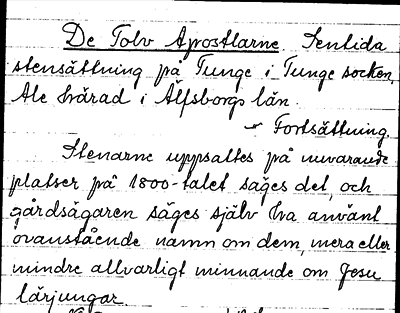 De Tolv Apostlarne. Sentida
stensättning på Tunge i Tunge socken,
Ale härad i Älfsborgs län.
Fortsättning.
Stenarne uppsattes på nuvarande
platser på 1800-talet säges det, och
gårdsägaren säges själv ha använt
ovanstående namn om dem, mera eller
mindre allvarligt minnande om Jesu
lärjungar.